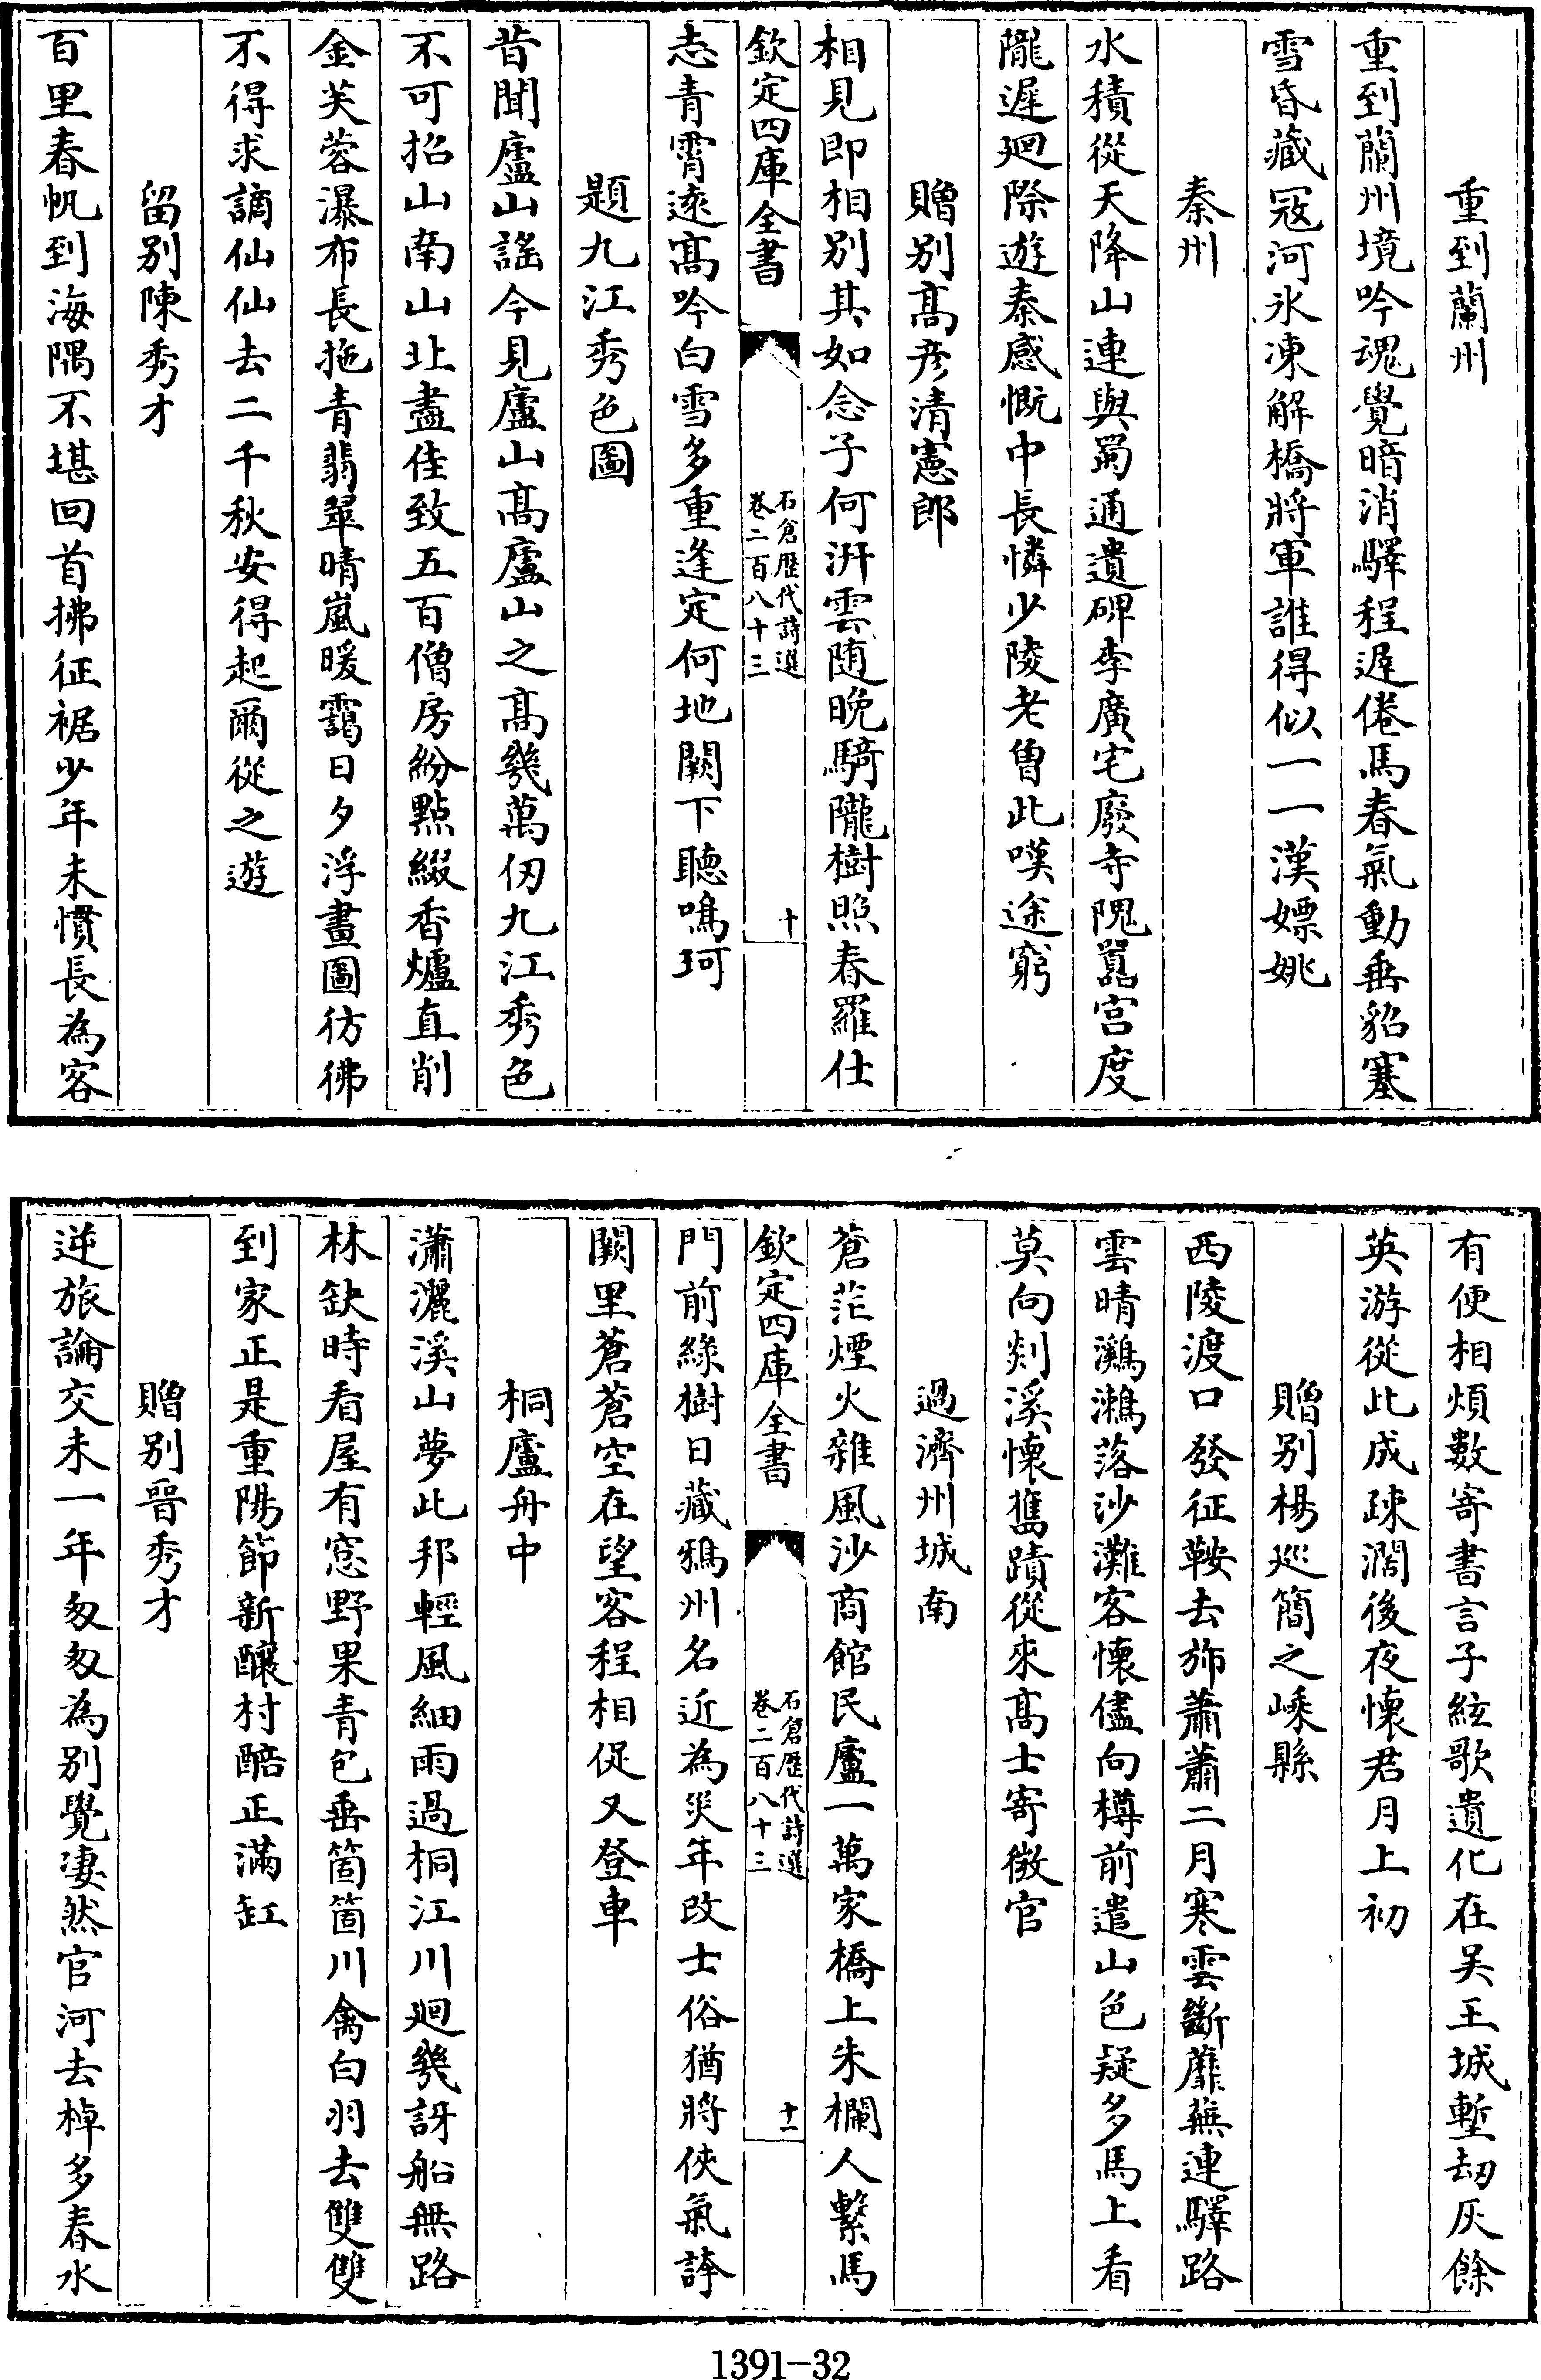 重到蘭州
重到蘭州境吟魂覺暗消驛程遲倦馬春氣動垂貂塞
雪昏藏冦河氷凍解橋將軍誰得似一一漢嫖姚
秦州
水積從天降山連與蜀通遺碑李廣宅廢寺隗囂宫度
隴遲廻際遊秦感慨中長憐少陵老曽此嘆途窮
贈别髙彦清憲郎
相見即相别其如念子何汧雲随晚騎隴樹照春羅仕
欽定四庫全書
石倉歷代詩選
卷二百八十三
十
志青霄逺髙吟白雪多重逢定何地闕下聽鳴珂
題九江秀色圖
昔聞廬山謡今見廬山髙廬山之髙幾萬仞九江秀色
不可招山南山北盡佳致五百僧房紛點綴香爐直削
金芙蓉瀑布長拖青翡翠晴嵐暖靄日夕浮畫圖彷彿
不得求謫仙仙去二千秋安得起爾從之遊
留别陳秀才
百里春帆到海隅不堪回首拂征裾少年未慣長為客
有便相煩數寄書言子絃歌遺化在吴王城塹刼灰餘
英游從此成疎濶後夜懷君月上初
贈别楊巡簡之嵊縣
西陵渡口發征鞍去斾蕭蕭二月寒雲斷蘼蕪連驛路
雲晴鸂鶒落沙灘客懷儘向樽前遣山色疑多馬上看
莫向剡溪懷舊蹟從來髙士寄微官
過濟州城南
蒼茫煙火雜風沙商館民廬一萬家橋上朱欄人繫馬
欽定四庫全書
石倉歷代詩選
卷二百八十三
十一
門前綠樹日藏鴉州名近為災年改士俗猶將俠氣誇
闕里蒼蒼空在望客程相促又登車
桐廬舟中
瀟灑溪山夢此邦輕風細雨過桐江川廻幾訝船無路
林缺時看屋有窓野果青包垂箇箇川禽白羽去雙雙
到家正是重陽節新釀村醅正滿缸
贈别晉秀才
逆旅論交未一年匆匆為别覺凄然官河去棹多春水
1391-32